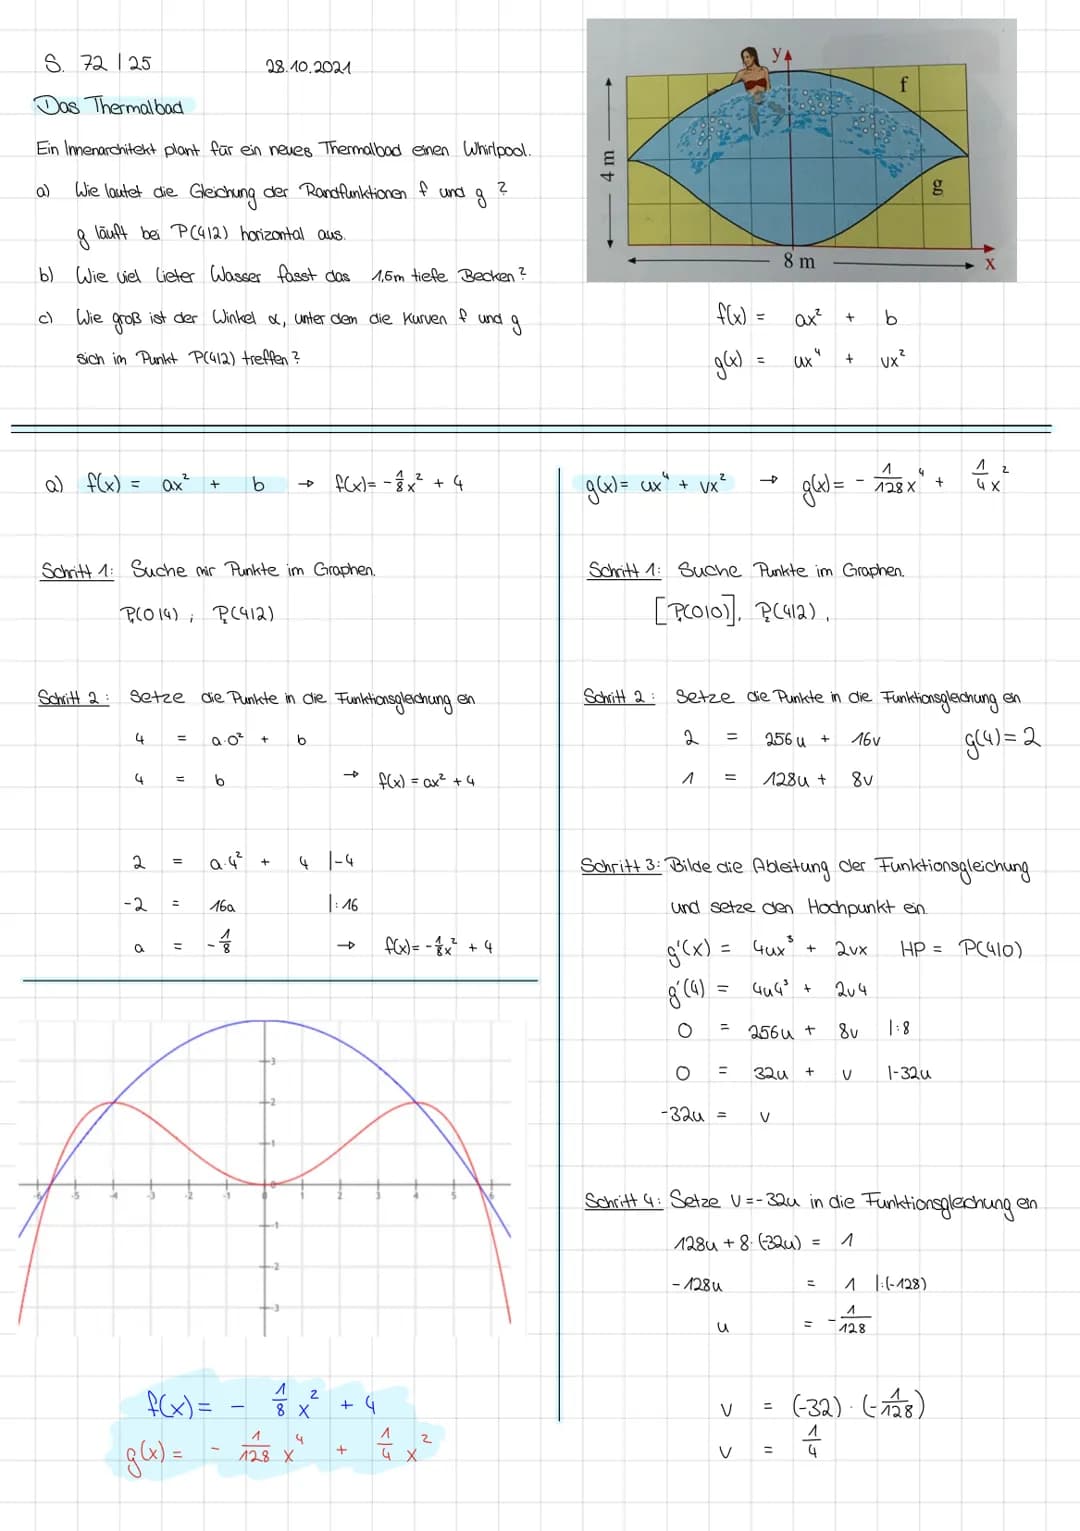 S. 72 | 25 28.10.2021
Das Thermalbad
Ein Innenarchitekt plant für ein neues Thermalbad einen Whirlpool.
a) Wie lautet die Gleichung der Randfunktionen f und g ?
g läuft bei P(4|2) horizontal aus.
b) Wie viel Lieter Wasser fasst das 1,6m tiefe Becken ?
c) Wie groß ist der Winkel α, unter dem die Kurven f und g
sich im Punkt P(4|2) treffen ?
y
f
4 m
g
8 m
x
f(x) = ax² + b
g(x) = ux⁴ + vx²
a) f(x) = ax² + b → f(x) = -1/8 x² + 4
Schritt 1: Suche mir Punkte im Graphen.
P₁(0|4) ; P₂(4|2)
Schritt 2 : Setze die Punkte in die Funktionsgleichung ein
4 = a·0² + b
4 = b → f(x) = ax² + 4
2 = a·4² + 4 |-4
-2 = 16a |: 16
a = -1/8 → f(x) = -1/8 x² + 4
3
2
1
-6 -5 -4 -3 -2 -1 0 1 2 3 4 5 6
-1
-2
-3
f(x) = - 1/8 x² + 4
g(x) = - 1/128 x⁴ + 1/4 x²
g(x) = ux⁴ + vx² → g(x) = - 1/128 x⁴ + 1/4 x²
Schritt 1: Suche Punkte im Graphen.
[P₁(0|0)], P₂(4|2),
Schritt 2 : Setze die Punkte in die Funktionsgleichung ein
2 = 256u + 16v g(4) = 2
1 = 128u + 8v
Schritt 3: Bilde die Ableitung der Funktionsgleichung
und setze den Hochpunkt ein.
g'(x) = 4ux³ + 2vx HP = P(4|0)
g'(4) = 4u4³ + 2v4
0 = 256u + 8v |:8
0 = 32u + v |-32u
-32u = v
Schritt 4: Setze v = -32u in die Funktionsgleichung ein
128u + 8·(-32u) = 1
-128u = 1 |:(-128)
u = -1/128
v = (-32) · (-1/128)
v = 1/4